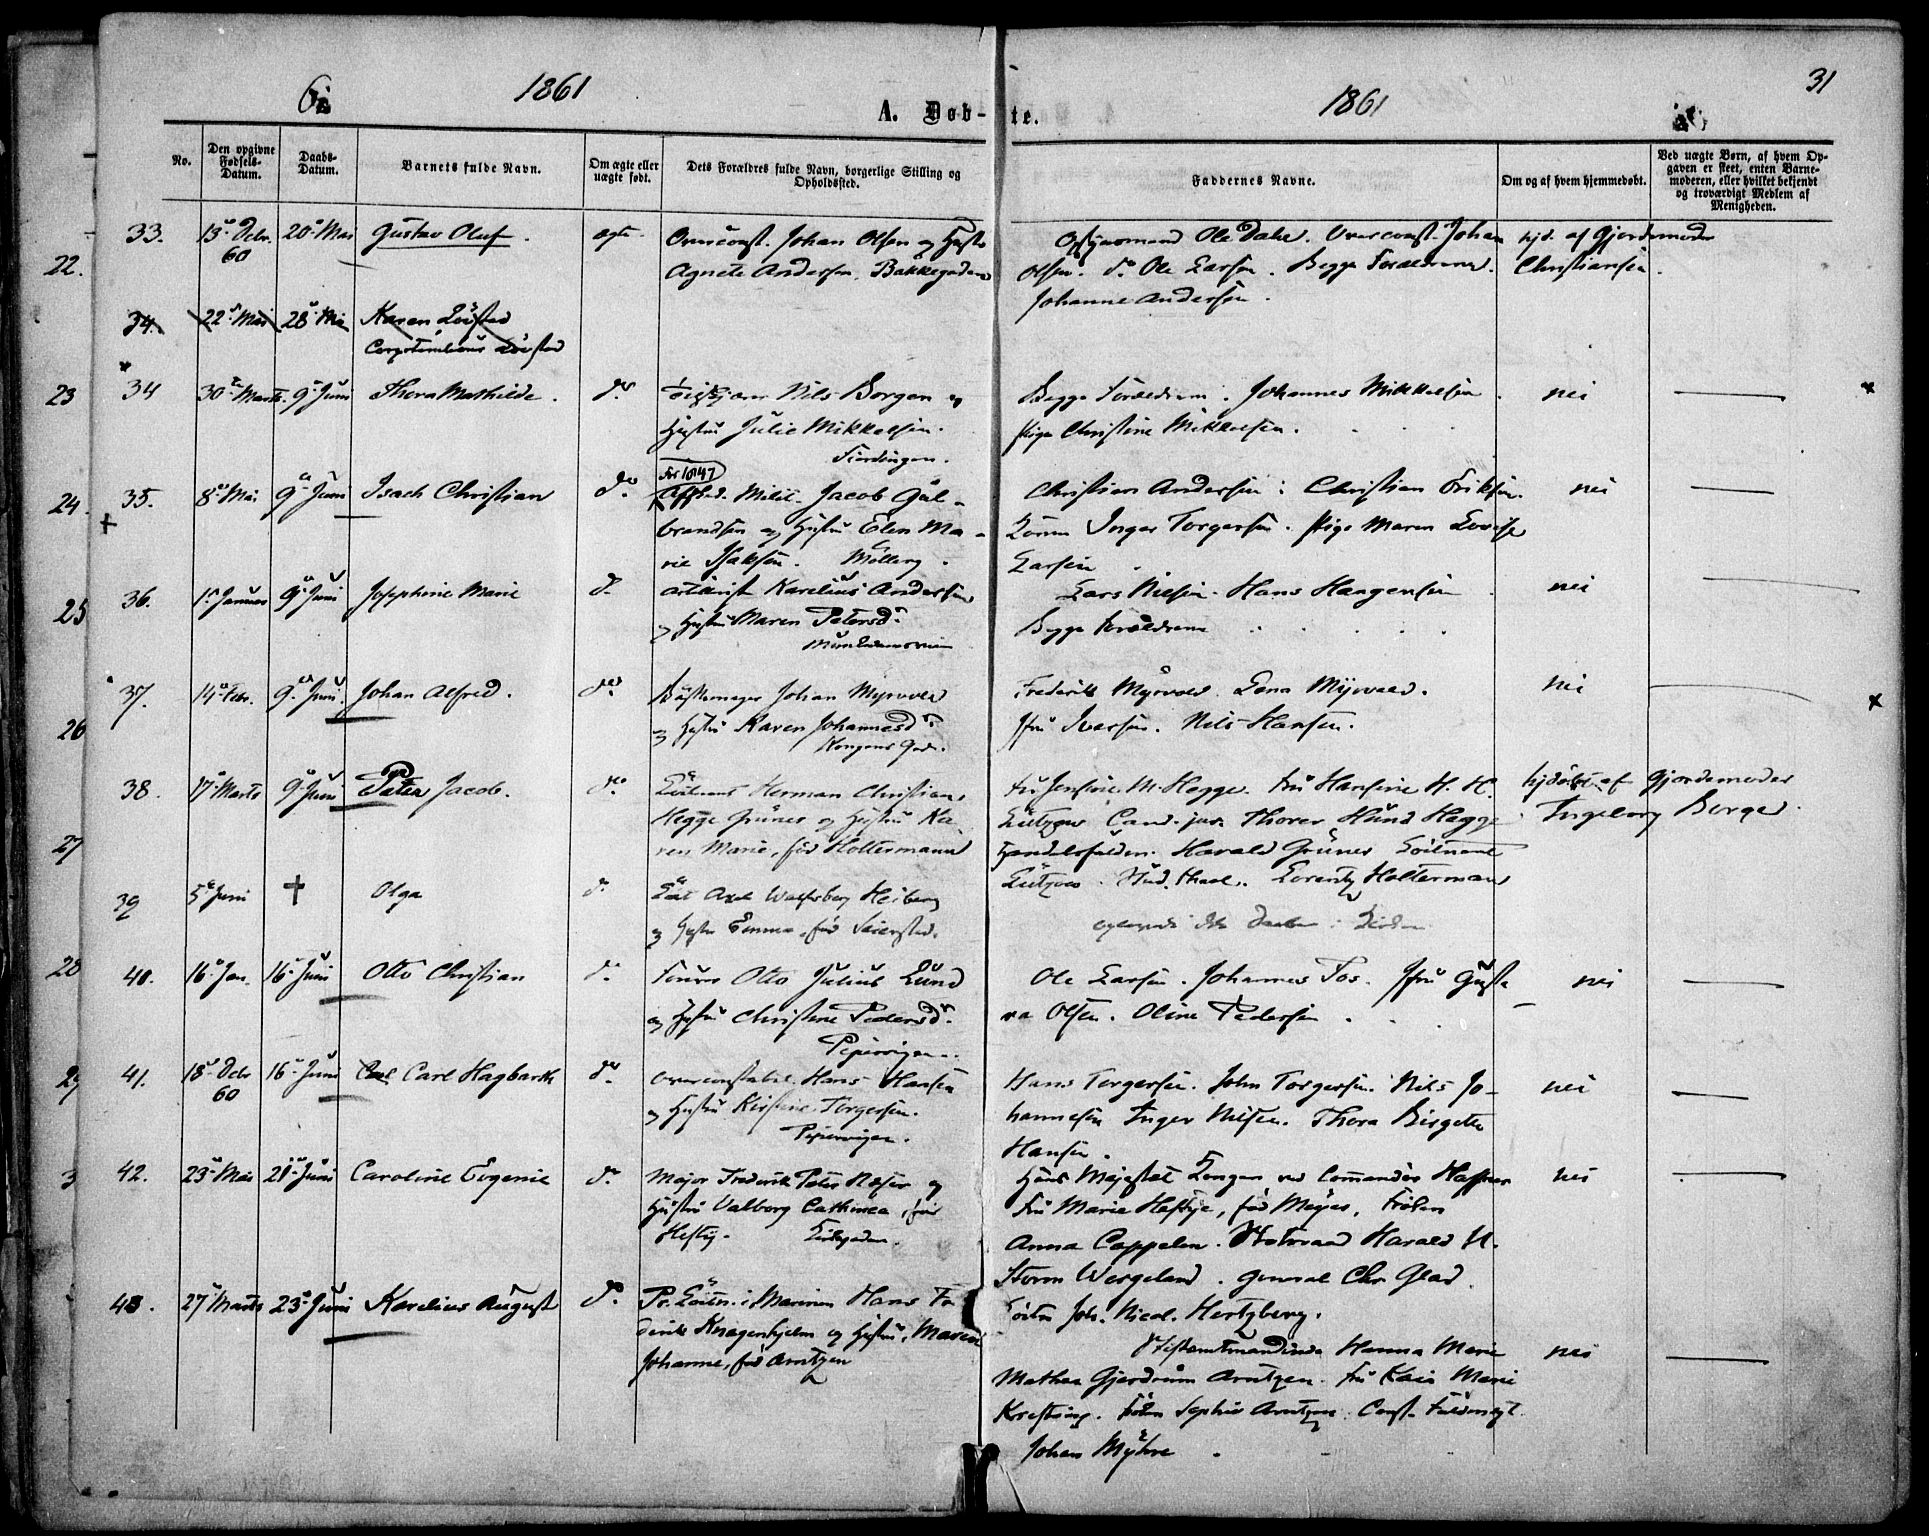 1861
A. Døb-
No.
Den opgivne Fødsels-Datum.
Daabs-Datum.
Barnets fulde Navn.
Om ægte eller uægte født.
Dets Forældres fulde Navn, borgerlige Stilling og Opholdssted.
1861
31
te.
Faddernes Navne.
Om og af hvem hjemmedøbt.
Ved uægte Børn, af hvem Opgaven er skeet, enten Barnemoderen, eller hvilket bekjendt og troværdigt Medlem af Menigheden.
22.
33. 13 Debr. 60 20 Mai Gustav Oluf. ægte. Johan Olsen og Hustru
Agnete Andersen, Bakkegaden
Ole Dahl. Overconst. Johan
Olsen. do Ole Larsen. Begge Forældrene.
Johanne Andersen.
hjd. af Gjordemoder
Christiansen.
34. 22 Mai 28 Mai Karen Lövstad
23
34 30 Marts. 9 Juni Thora Mathilde. do. Nils Borgen og
Hustru Julie Mikkelsen.
Fjerdingen.
Begge Forældrene. Johannes Mikkelsen
Pige Christine Mikkelsen.
nei
24.
35. 8 Mai 9 Juni Isach Christian do. Afsked. Milit. Jacob Gul-
brandsen og Hustru Elen Ma-
rie Isaksen. Möllerg.
Christian Andersen. Christian Eriksen.
Konen Inger Torgersen. Pige Maren Lovise
Larsen
nei
25
36. 1 Januar 9 Juni Josephine Marie do. Artillerist Karelius Andersen
og Hustru Maren Petersd.
Lars Nilsen. Hans Haagensen
Begge Forældrene
nei
26
37. 14 Febr. 9. Juni. Johan Alfred. do. Johan Myrvold
og Hustru Karen Johannesd.
Kongens Gade.
Frederik Myrvold. Lena Myrvold.
Jfru Iversen. Nils Hansen.
nei
27
38. 17 Marts 9 Juni Peter Jacob. do. Löitnant Herman Christian
Hegge Grüner og Hustru Ka-
ren Marie, föd Holtermann
Fru Jensine M. Hegge. Fru Hansine H. H.
Lützow Cand. jur. Thorer Hund Hegge
Handelsfuldm. Harald Grüner Löitnant
Lützow. Stud. theol. Lorentz Holtermann
hjdöbt af Gjordemoder
Ingeborg Borger.
39 5 Juni † Olga do. Löit. Axel Heiberg
og Hustru Emma, föd Seiersted.
28
40. 16 Jan. 16 Juni Otto Christian do. Otto Julius Lund
og Hustru Christine Pedersd.
Pipervigen.
Ole Larsen. Johannes Fos. Jfru Gusta
va Olsen. Oline Pedersen
nei
29
41. 18 Debr 60 16 Juni Carl Hagbarth do. Overconstabel Hans Hansen
og Hustru Kirstine Torgersen.
Pipervigen.
Hans Torgersen. John Torgersen. Nils Jo-
hannesen Inger Nilsen. Thora Birgitte
Hansen
nei
3
42. 23 Mai 21 Juni Caroline Eugenie do. Major Frederik Peter Næser og
Hustru Valborg Cathinca, föd
Heftye. Kirkegaden.
Hans Majestæt Kongen ved Commandör Haffner
Fru Marie Heftye, föd Meyer, Fröken
Anna Cappelen. Statsraad Harald N.
Storm Wergeland. General Chr. Glad.
Löitn Joh. Nicol. Hertzberg.
nei
43. 27 Marts 23 Juni Karelius August do. Pr. Löitn. i Marinen Hans Fre
derik Knagenhjelm og Hustru, Maren
Johanne, föd Arntzen
Stiftamtmandinde Hanna Marie
Mathea Gjerdrum Arntzen. Fru Kaia Marie
Krefting. Fröken Sophie Arntzen. Const. Fuldmegt.
Johan Myhre
nei